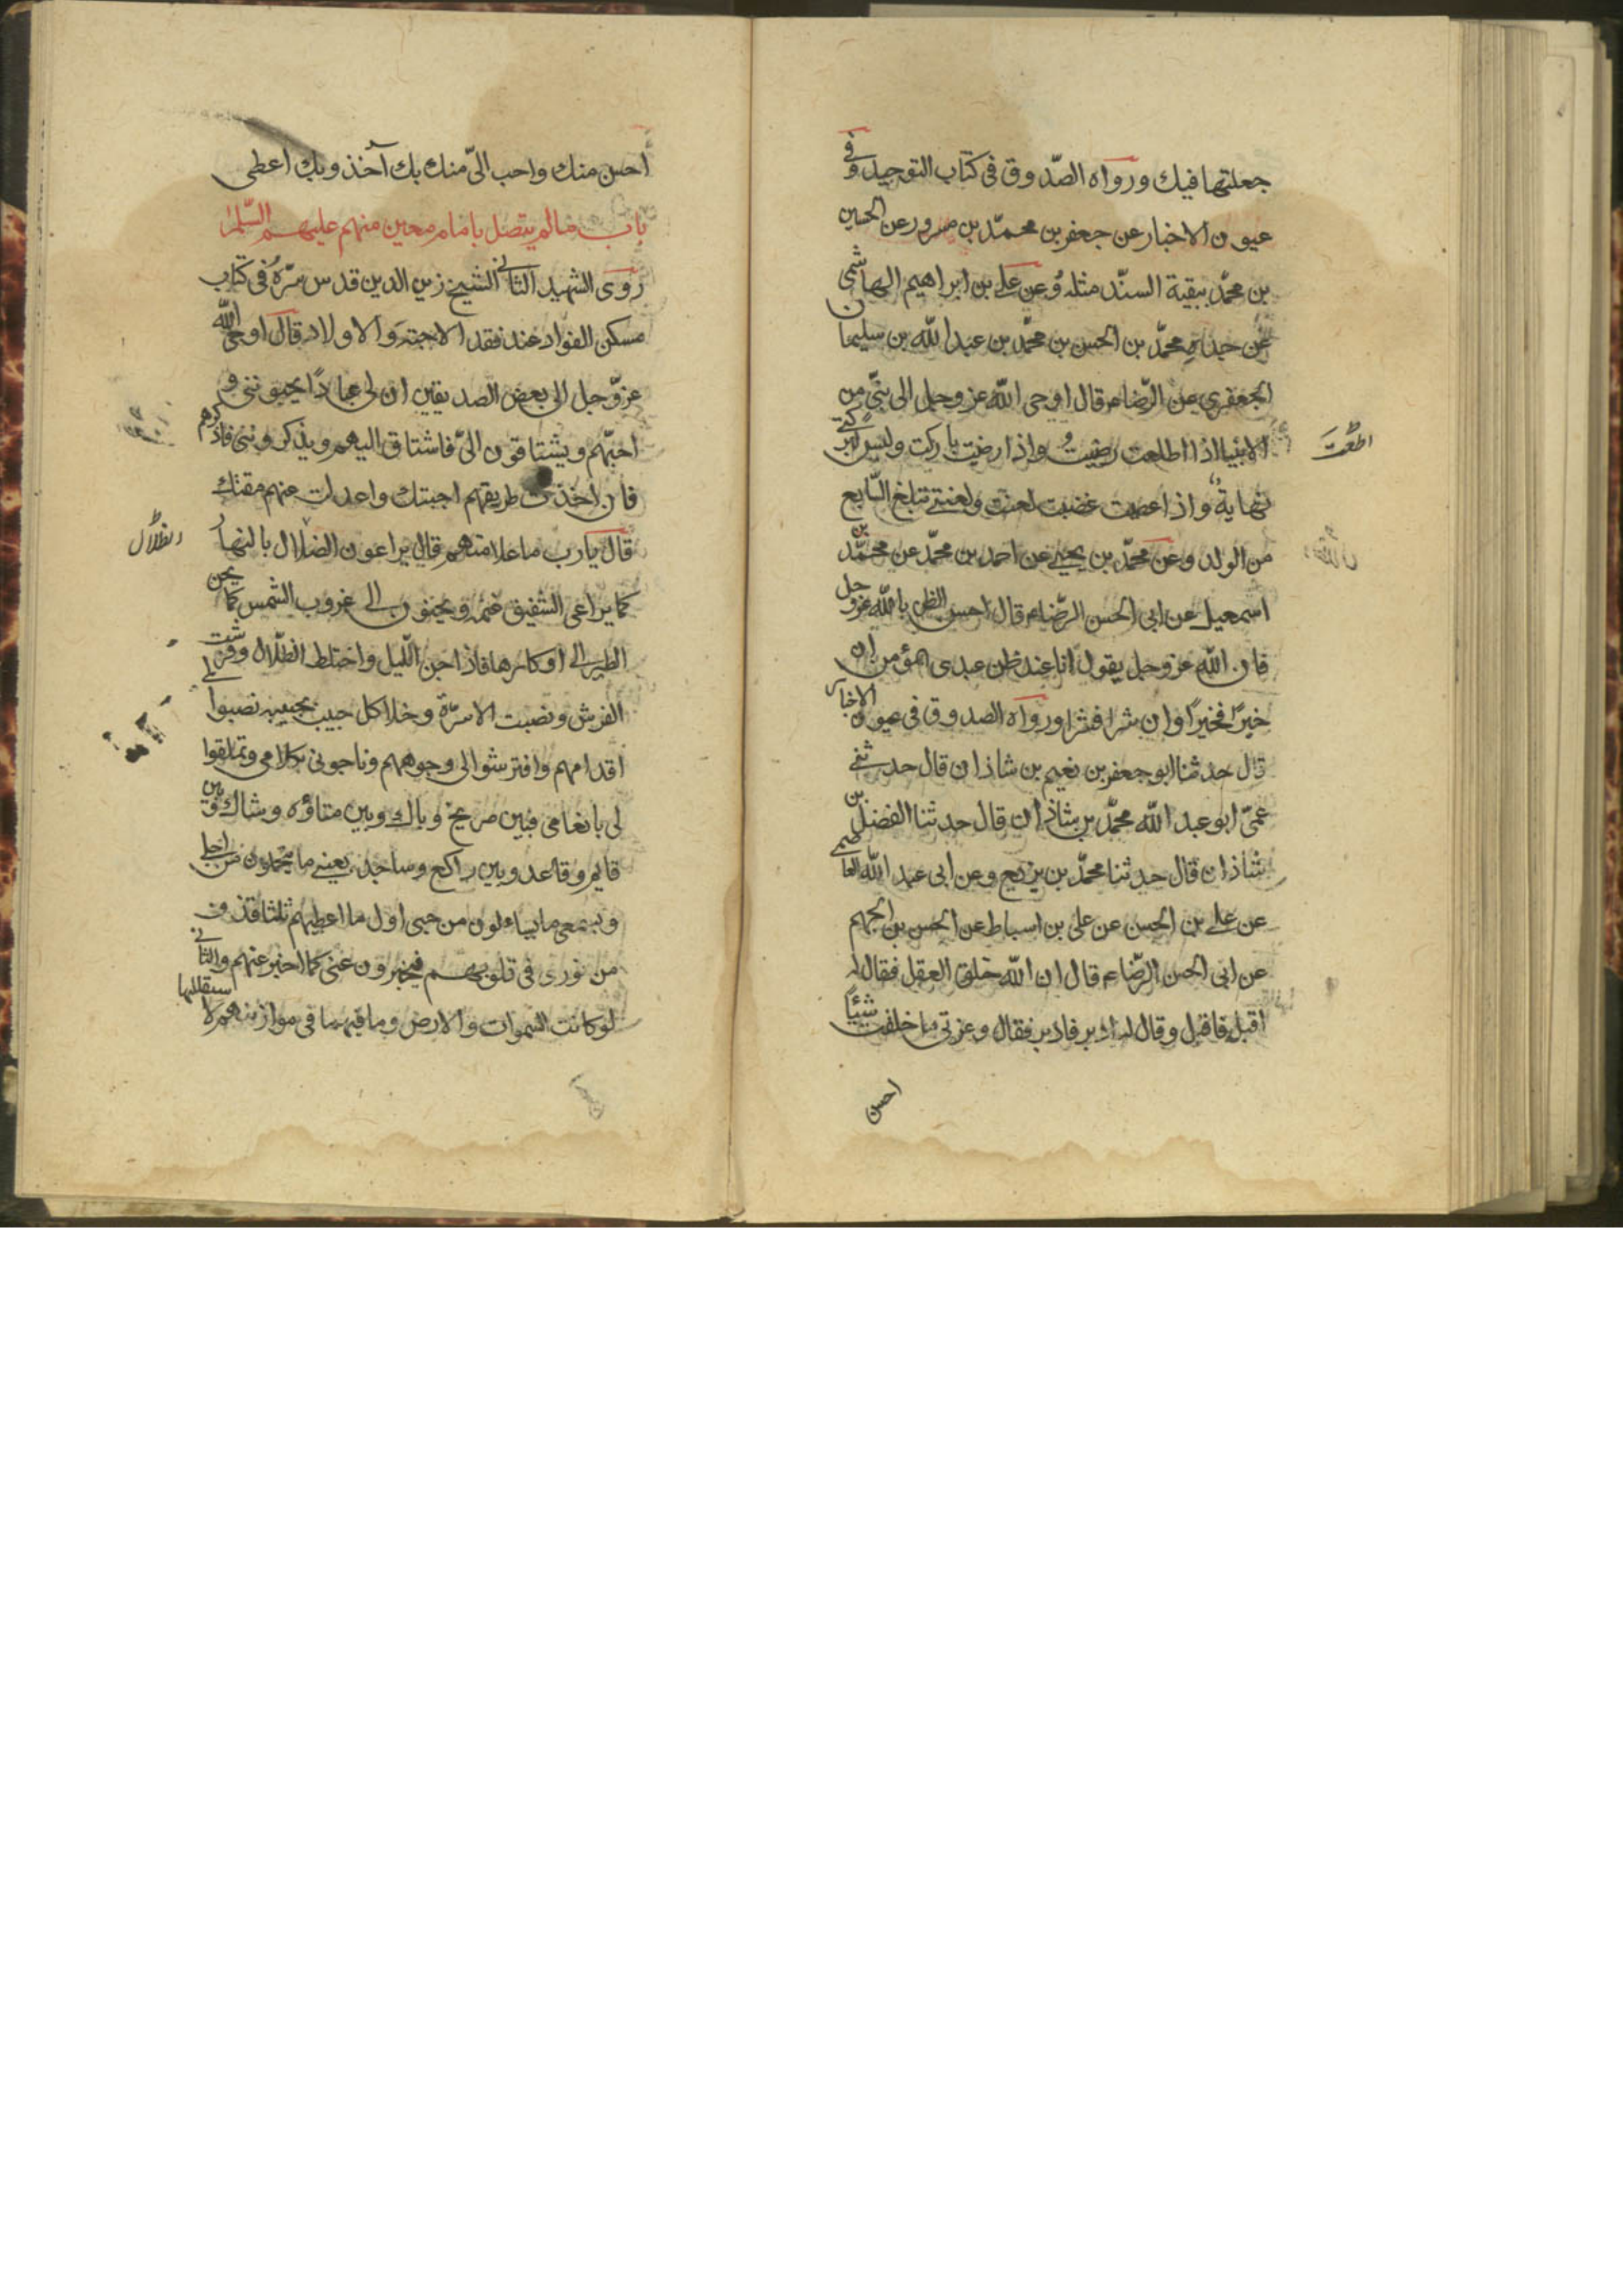 جعلتها فيك ورواه الصّدوق فى كتاب التوحيد وفى
عيون الاخبار عن جعفر بن محمّد بن مسرور عن الحسين
بن محمّد ببقية السنّد مثله وعن على بن ابراهيم الهاشمى
عن جده محمّد بن الحسن بن محمّد بن عبد الله بن سليمان
الجعفرى عن الرّضاء قال اوحى الله عز وجل الى نبىّ من
الانبيا اذا اطلعت رضيت واذا رضيت باركت وليس لبركتى
اطعتَ
نهاية واذا عصيت غضبت لعنت ولعنتى تبلغ السّابع
من الولد وعن محمّد بن يحيى عن احمد بن محمّد عن محمّد بن
اسمعيل عن ابى الحسن الرّضاء قال احسن الظن بالله عز وجل
فان الله عز وجل يقول انا عند ظن عبدى المؤمن ان
خيرًا فخيرًا وان شرا فشرا ورواه الصدوق فى عيون الاخبار
قال حدثنا ابو جعفر بن نعيم بن شاذان قال حدثنى
عمّى ابو عبد الله محمّد بن شاذان قال حدثنا الفضل بن
شاذان قال حدثنا محمّد بن بزيع وعن ابى عبد الله العاصمى
عن على بن الحسن عن على بن اسباط عن الحسن بن الجهم
عن ابى الحسن الرّضاء قال ان الله خلق العقل فقال له
اقبل فاقبل وقال له ادبر فادبر فقال وعزتى ما خلقت شيئًا
احسن
احسن منك واحب الىّ منك بك آخذ وبك اعطى
باب ما لم يتصل بامام معين منهم عليهم السّلم
روى الشهيد الثانى الشيخ زين الدين قدس سرّه فى كتاب
مسكن الفؤاد عند فقد الاحبّة والاولاد قال اوحى الله
عزّ وجل الى بعض الصديقين ان لى عبادًا يحبوننى و
احبّهم ويشتاقون الىّ فاشتاق اليهم ويذكروننى فاذكرهم
فان اخذت طريقهم احببتك وان عدلت عنهم مقتك
قال يا رب ما علامتهم قال يراعون الضلال بالنهار
الظلال
كما يراعى الشفيق غنمه ويحنون الى غروب الشمس كما يحن
الطير الى اوكارها فاذا جن اللّيل واختلط الظلّال وفرشت
الفرش ونصبت الاسرّة وخلا كل حبيب بحبيبه نصبوا لى
اقدامهم وافترشوا الى وجوههم وناجونى بكلامى وتملقوا
لى بانعامى فبين صريخ وباك وبين متاؤه وشاك وبين
قايم وقاعد وبين راكع وساجد بعينى ما يتحملون من اجلى
وبسمعى ما يساءلون من حبى اول ما اعطيهم ثلثا قذف
من نورى فى قلوبهم فيخبرون عنى كما اخبر عنهم والثانى
لو كانت السّموات والارض وما فيهما فى موازينهم لاستقللها